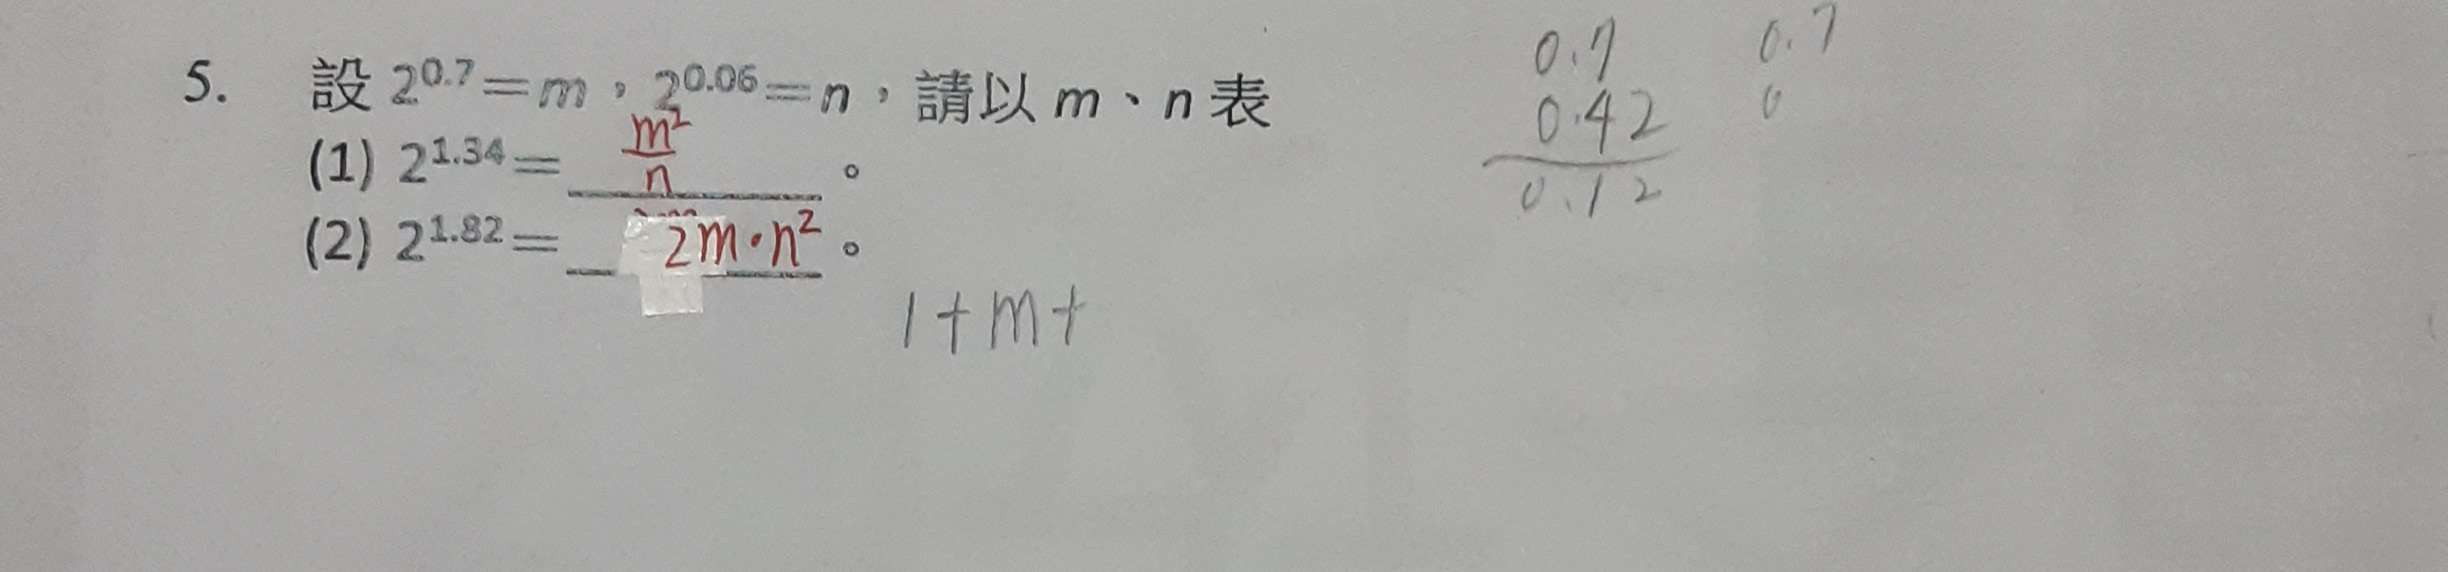 5. 設 2^0.7=m，2^0.06=n，請以 m、n 表
(1) 2^1.34= m²/n 。
(2) 2^1.82= 2m·n² 。
1+m+
0.7
0.42
0.12
0.7
0